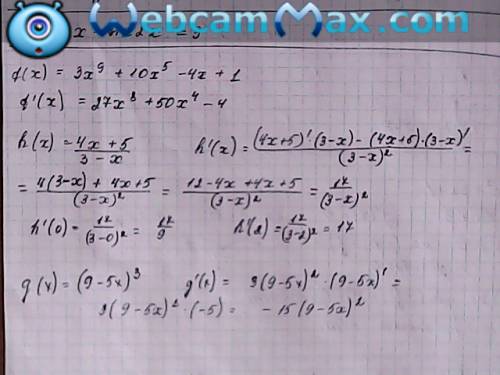 WebcamMax.com
f(x) = 3x⁹ + 10x⁵ - 4x + 1
f'(x) = 27x⁸ + 50x⁴ - 4
h(x) = (4x + 5)/(3 - x) h'(x) = ((4x+5)'·(3-x) - (4x+5)·(3-x)')/(3-x)² =
= (4(3-x) + 4x+5)/(3-x)² = (12-4x+4x+5)/(3-x)² = 17/(3-x)²
h'(0) = 17/(3-0)² = 17/9 h'(2) = 17/(3-2)² = 17
g(x) = (9-5x)³ g'(x) = 3(9-5x)²·(9-5x)' =
3(9-5x)²·(-5) = -15(9-5x)²